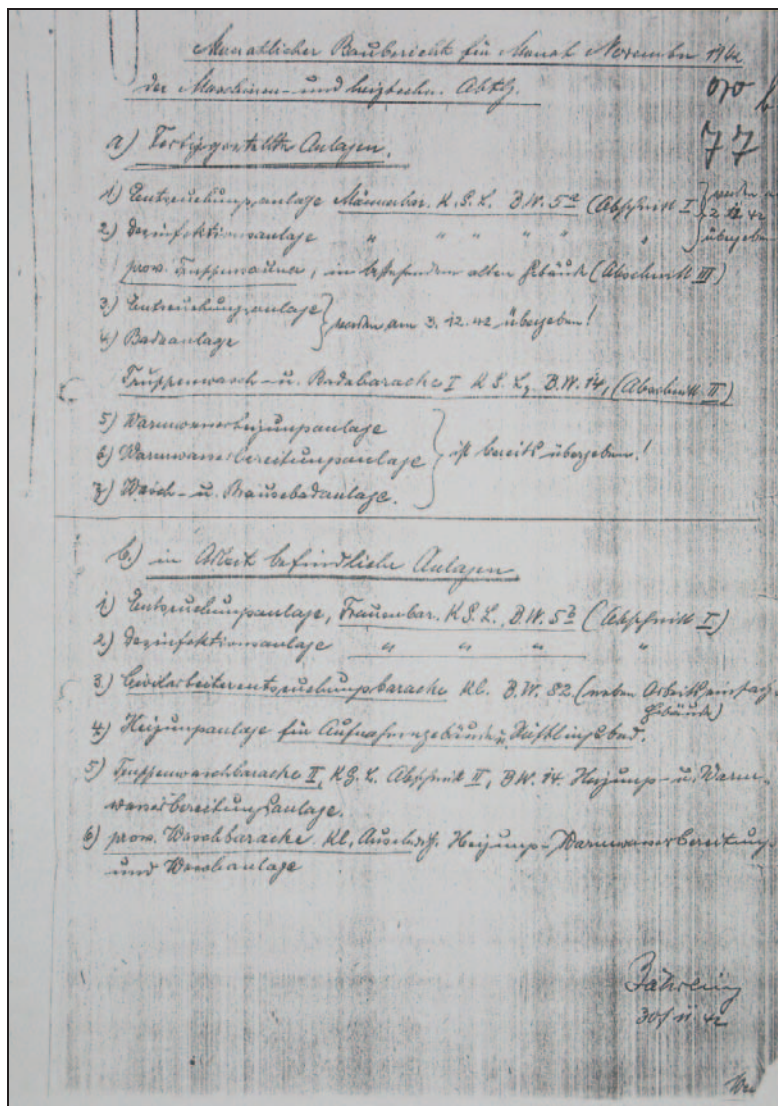 Monatlicher Baubericht für Monat November 1942
der Maschinen- und heiztechn. Abtlg.
070
77
a) Fertiggestellte Anlagen.
1) Entseuchungsanlage Männerbar. K.G.L. B.W. 5a (Abschnitt I) } werden am
2.) Desinfektionsanlage " " " " " " } 2.12.42 übergeben
prov. Truppensauna, in bestehendem alten Gebäude (Abschnitt III)
3.) Entseuchungsanlage } werden am 3.12.42 übergeben!
4.) Badeanlage
Truppenwasch- u. Badebarache I K.G.L, B.W. 14, (Abschnitt II)
5) Warmwasserheizungsanlage
6) Warmwasserbereitungsanlage } ist bereits übergeben!
7) Wasch- u. Brausebadanlage.
b.) in Arbeit befindliche Anlagen
1) Entseuchungsanlage, Frauenbar. K.G.L. B.W. 5b (Abschnitt I)
2) Desinfektionsanlage " " " "
3.) Civilarbeiterentseuchungsbarache KL. B.W. 82 (neben Arbeitseinsatz-
Gebäude)
4) Heizungsanlage für Aufnahmegebäude u. Häftlingsbad.
5) Truppenwaschbarache II, K.G.L. Abschnitt II, B.W. 14. Heizungs- u. Warm-
wasserbereitungsanlage.
6) prov. Waschbarache KL, Heizungs- Warmwasserbereitungs
und Waschanlage
Jährling
30/11 42